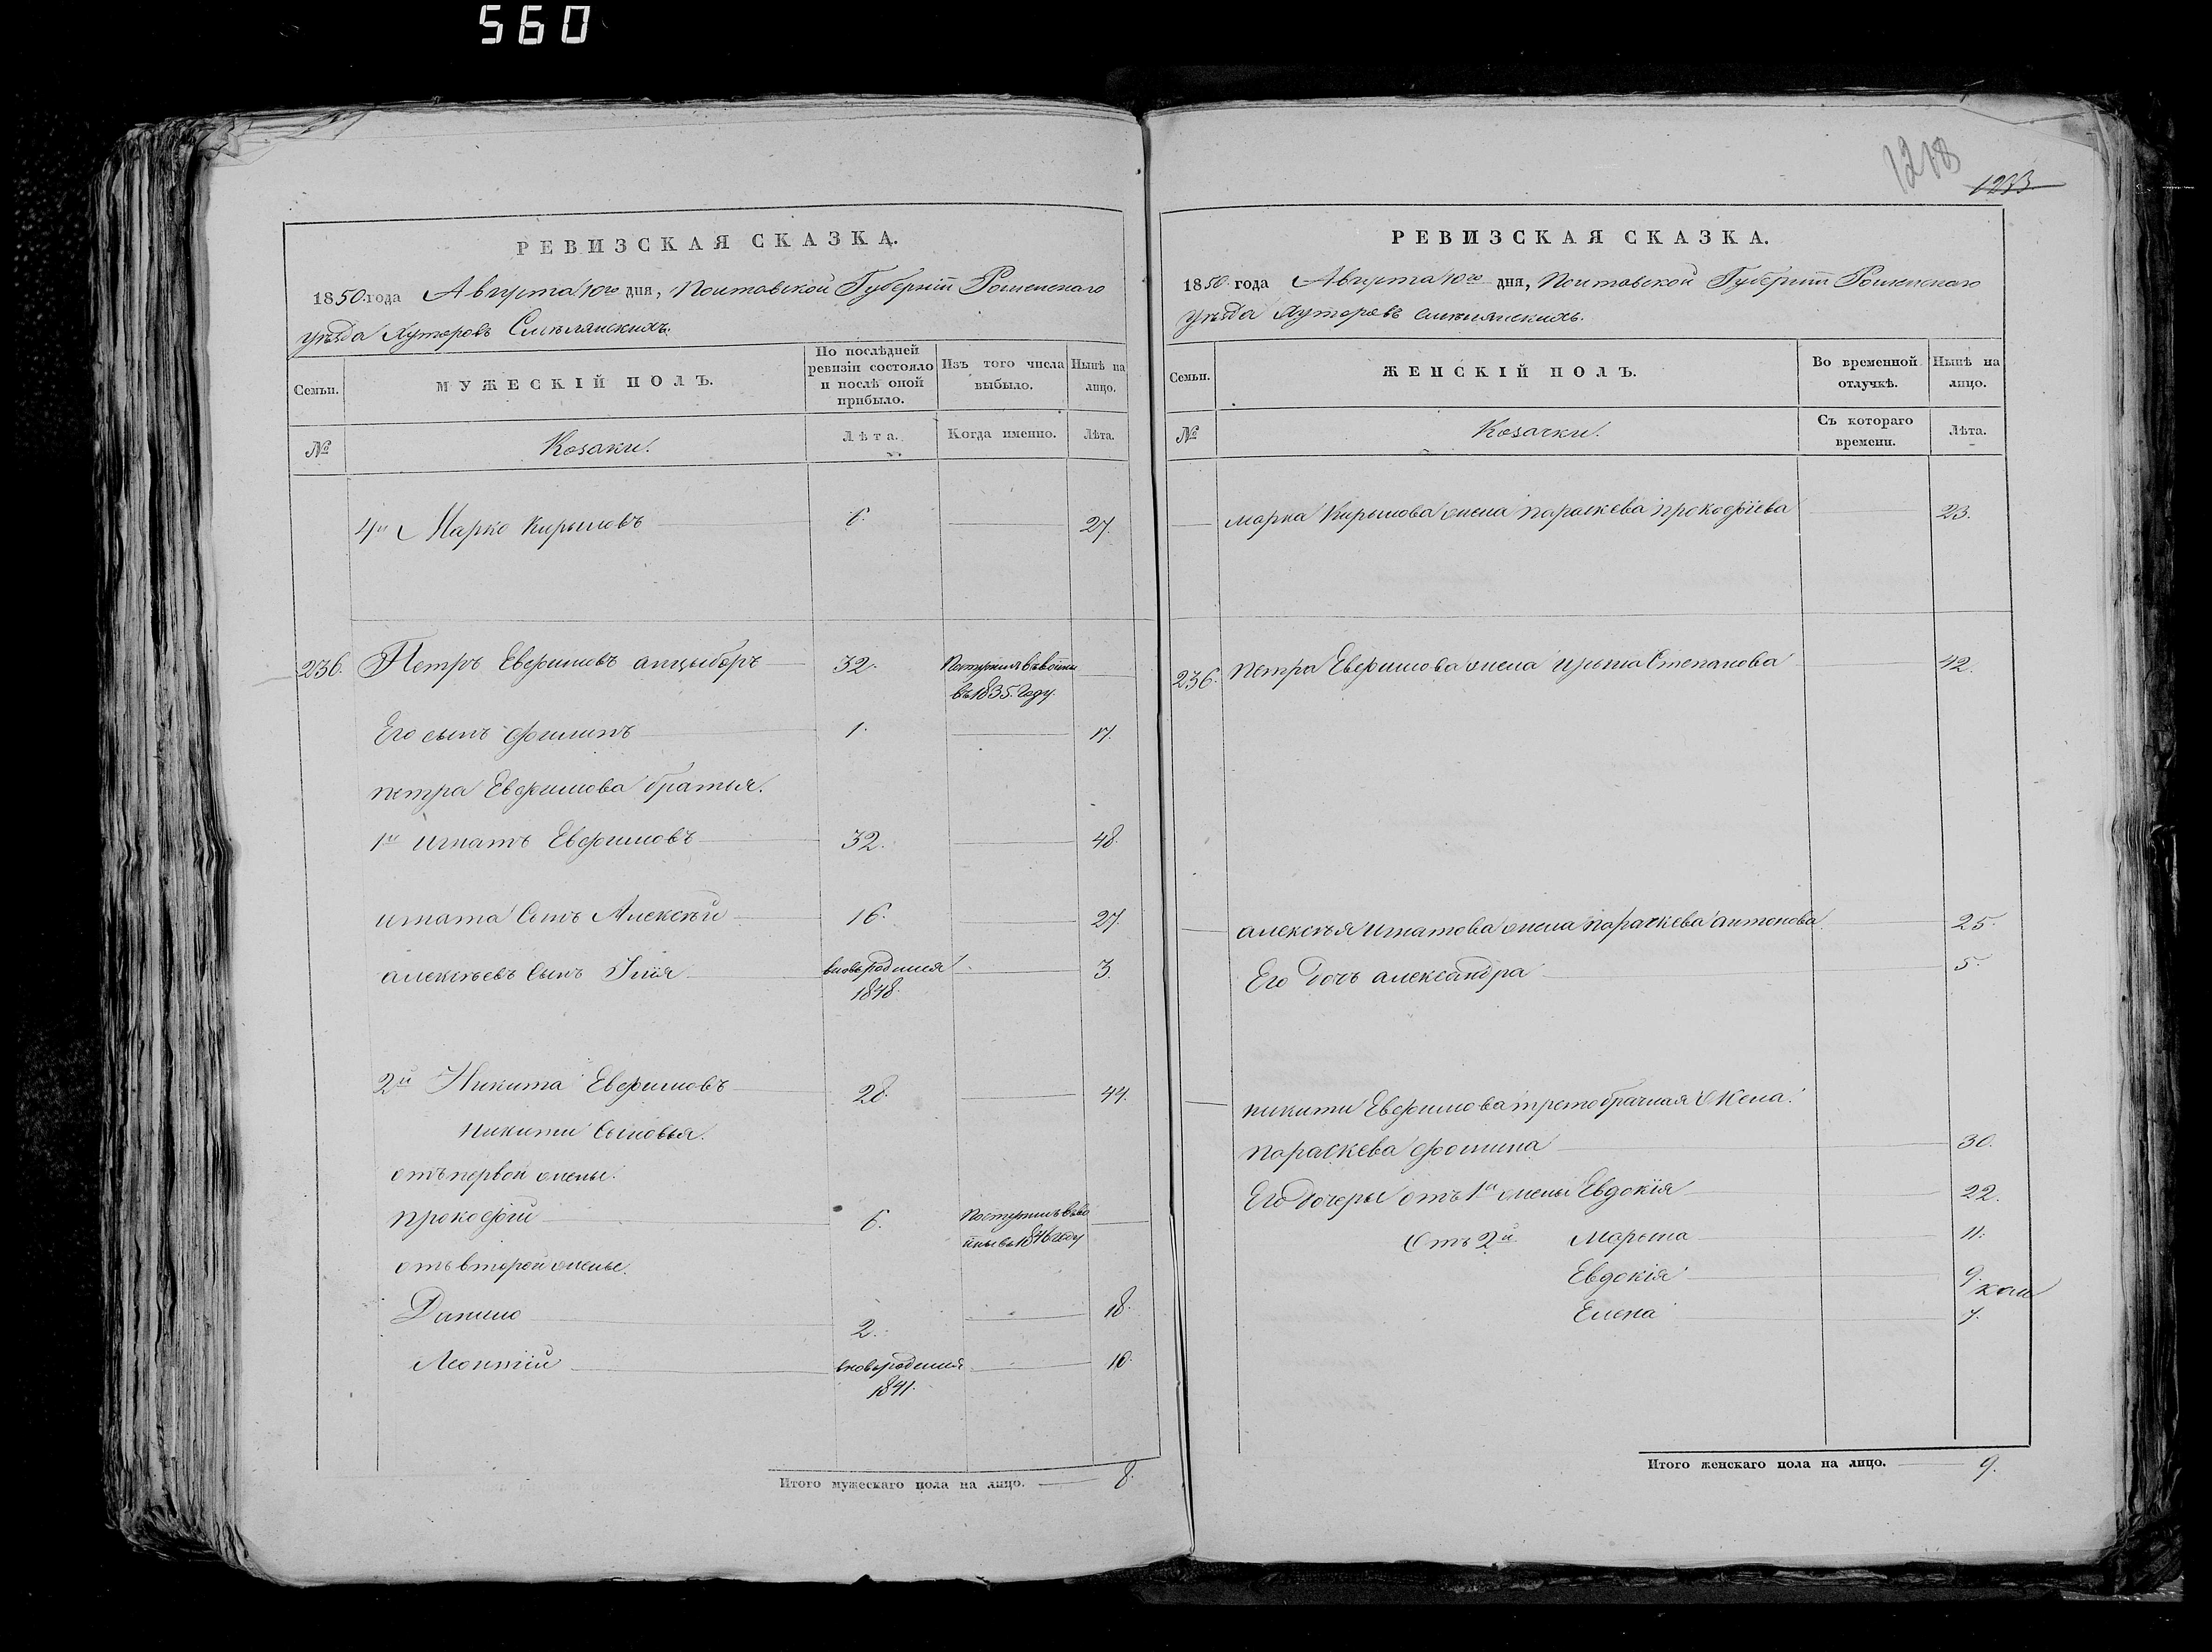 560
1218
1233
РЕВИЗСКАЯ СКАЗКА.
1850 года Августа 10го дня, Полтавской Губерніи Роменскаго
уѣзда Хуторовъ Смѣлянскихъ.
Семьи.
МУЖЕСКІЙ ПОЛЪ.
По послѣдней ревизіи состояло и послѣ оной прибыло.
Изъ того числа выбыло.
Нынѣ на лицо.
№
Козаки.
Лѣта.
Когда именно.
Лѣта.
4й Марко Кириловъ 6. 27.
236. Петръ Евфимовъ 32. Поступилъ въ воины
въ 1835. Году.
Его сынъ Филипъ 1. 17.
Петра Евфимова братья.
1й Игнатъ Евфимовъ 32. 48.
Игната Сынъ Алексѣй 16. 27.
Алексѣевъ Сынъ Илія вновь родился 3.
1848.
2й Никита Евфимовъ 28. 44.
Никиты Сыновья.
отъ первой жены.
Прокофій 6. Поступилъ въ во
ины въ 1846 году
отъ второй жены.
Данило 2. 18.
Леонтій вновь родился 10.
1841.
Итого мужескаго пола на лицо. 8.
РЕВИЗСКАЯ СКАЗКА.
1850 года Августа 10го дня, Полтавской Губерніи Роменскаго
уѣзда Хуторовъ Смѣлянскихъ.
Семьи.
ЖЕНСКІЙ ПОЛЪ.
Во временной отлучкѣ.
Нынѣ на лицо.
№
Козачки.
Съ котораго времени.
Лѣта.
Марка Кирилова жена Параскева Прокофіева 23.
236. Петра Евфимова жена Ирына Степанова 42.
Алексѣя Игнатова жена Параскева Антонова 25.
Его дочь Александра 5.
Никиты Евфимова третобрачная Жена.
Параскева Фомина 30.
Его дочеры отъ 1й жены Евдокія 22.
Отъ 2й Марьта 11.
Евдокія 9.
Елена 7.
Итого женскаго пола на лицо. 9.